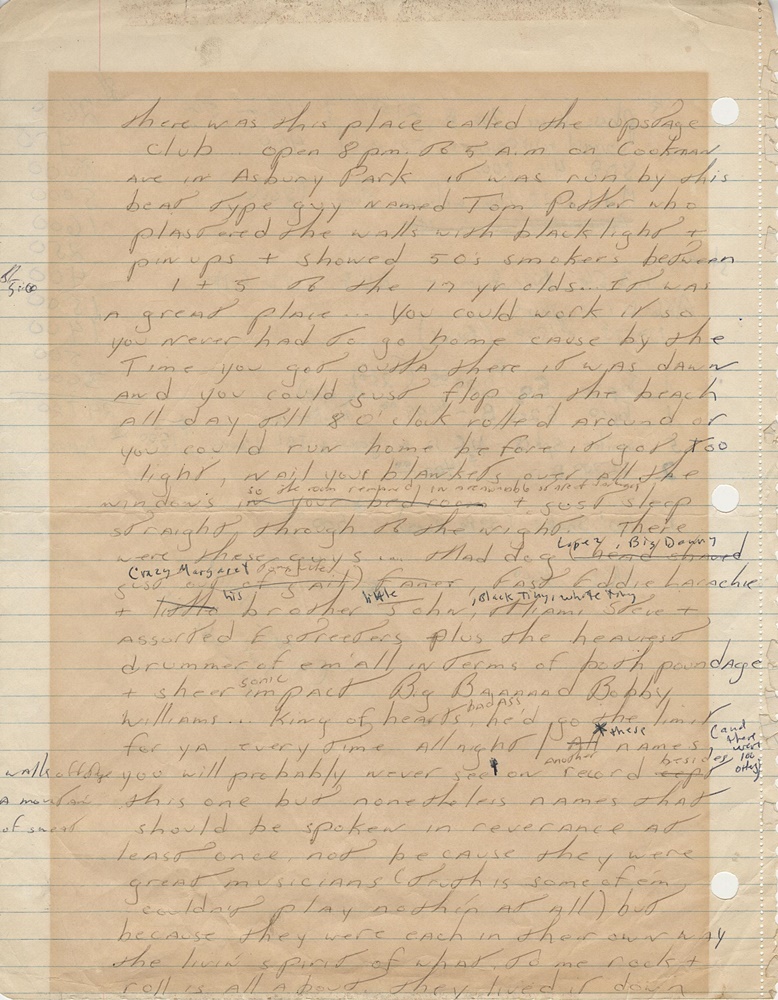 there was this place called the upstage
club open 8 pm. to 5 A.m on Cookman
Ave in Asbury Park it was run by this
beat type guy named Tom Potter who
plastered the walls with black light +
pin ups + showed 50's smokers between
1 + 5 to the 17 yr olds... It was
a great place... You could work it so
you never had to go home cause by the
Time you got outta there it was dawn
And you could just flop on the beach
All day till 8 O'clock rolled around or
you could run home before it got too
light, nail your blankets over all the
so the room remained in
windows in your bedroom + just sleep
straight through to the night. There
Lopez, Big Danny
were these guys... Mad dog (head shaved
Crazy Margaret
just out of jail) Fast Eddie Larachie
his little , Black Tiny, white tiny
+ brother John, Miami Steve +
assorted E streeters plus the heaviest
drummer of em' all, in terms of both poundage
sonic
+ sheer impact Big Baaaaad Bobby
badass
Williams... king of hearts, he'd go the limit
* these
for ya every time All night All names,
(and there were 100 others)
another besides
you will probably never see on record cept
walls
this one but nonetheless names that
a mountain
of sweat
should be spoken in reverance at
least once, not because they were
great musicians (truth is some of em
couldn't play nothin at all) but
because they were each in their own way
the livin' spirit of what, to me rock +
roll is all about. they lived it down